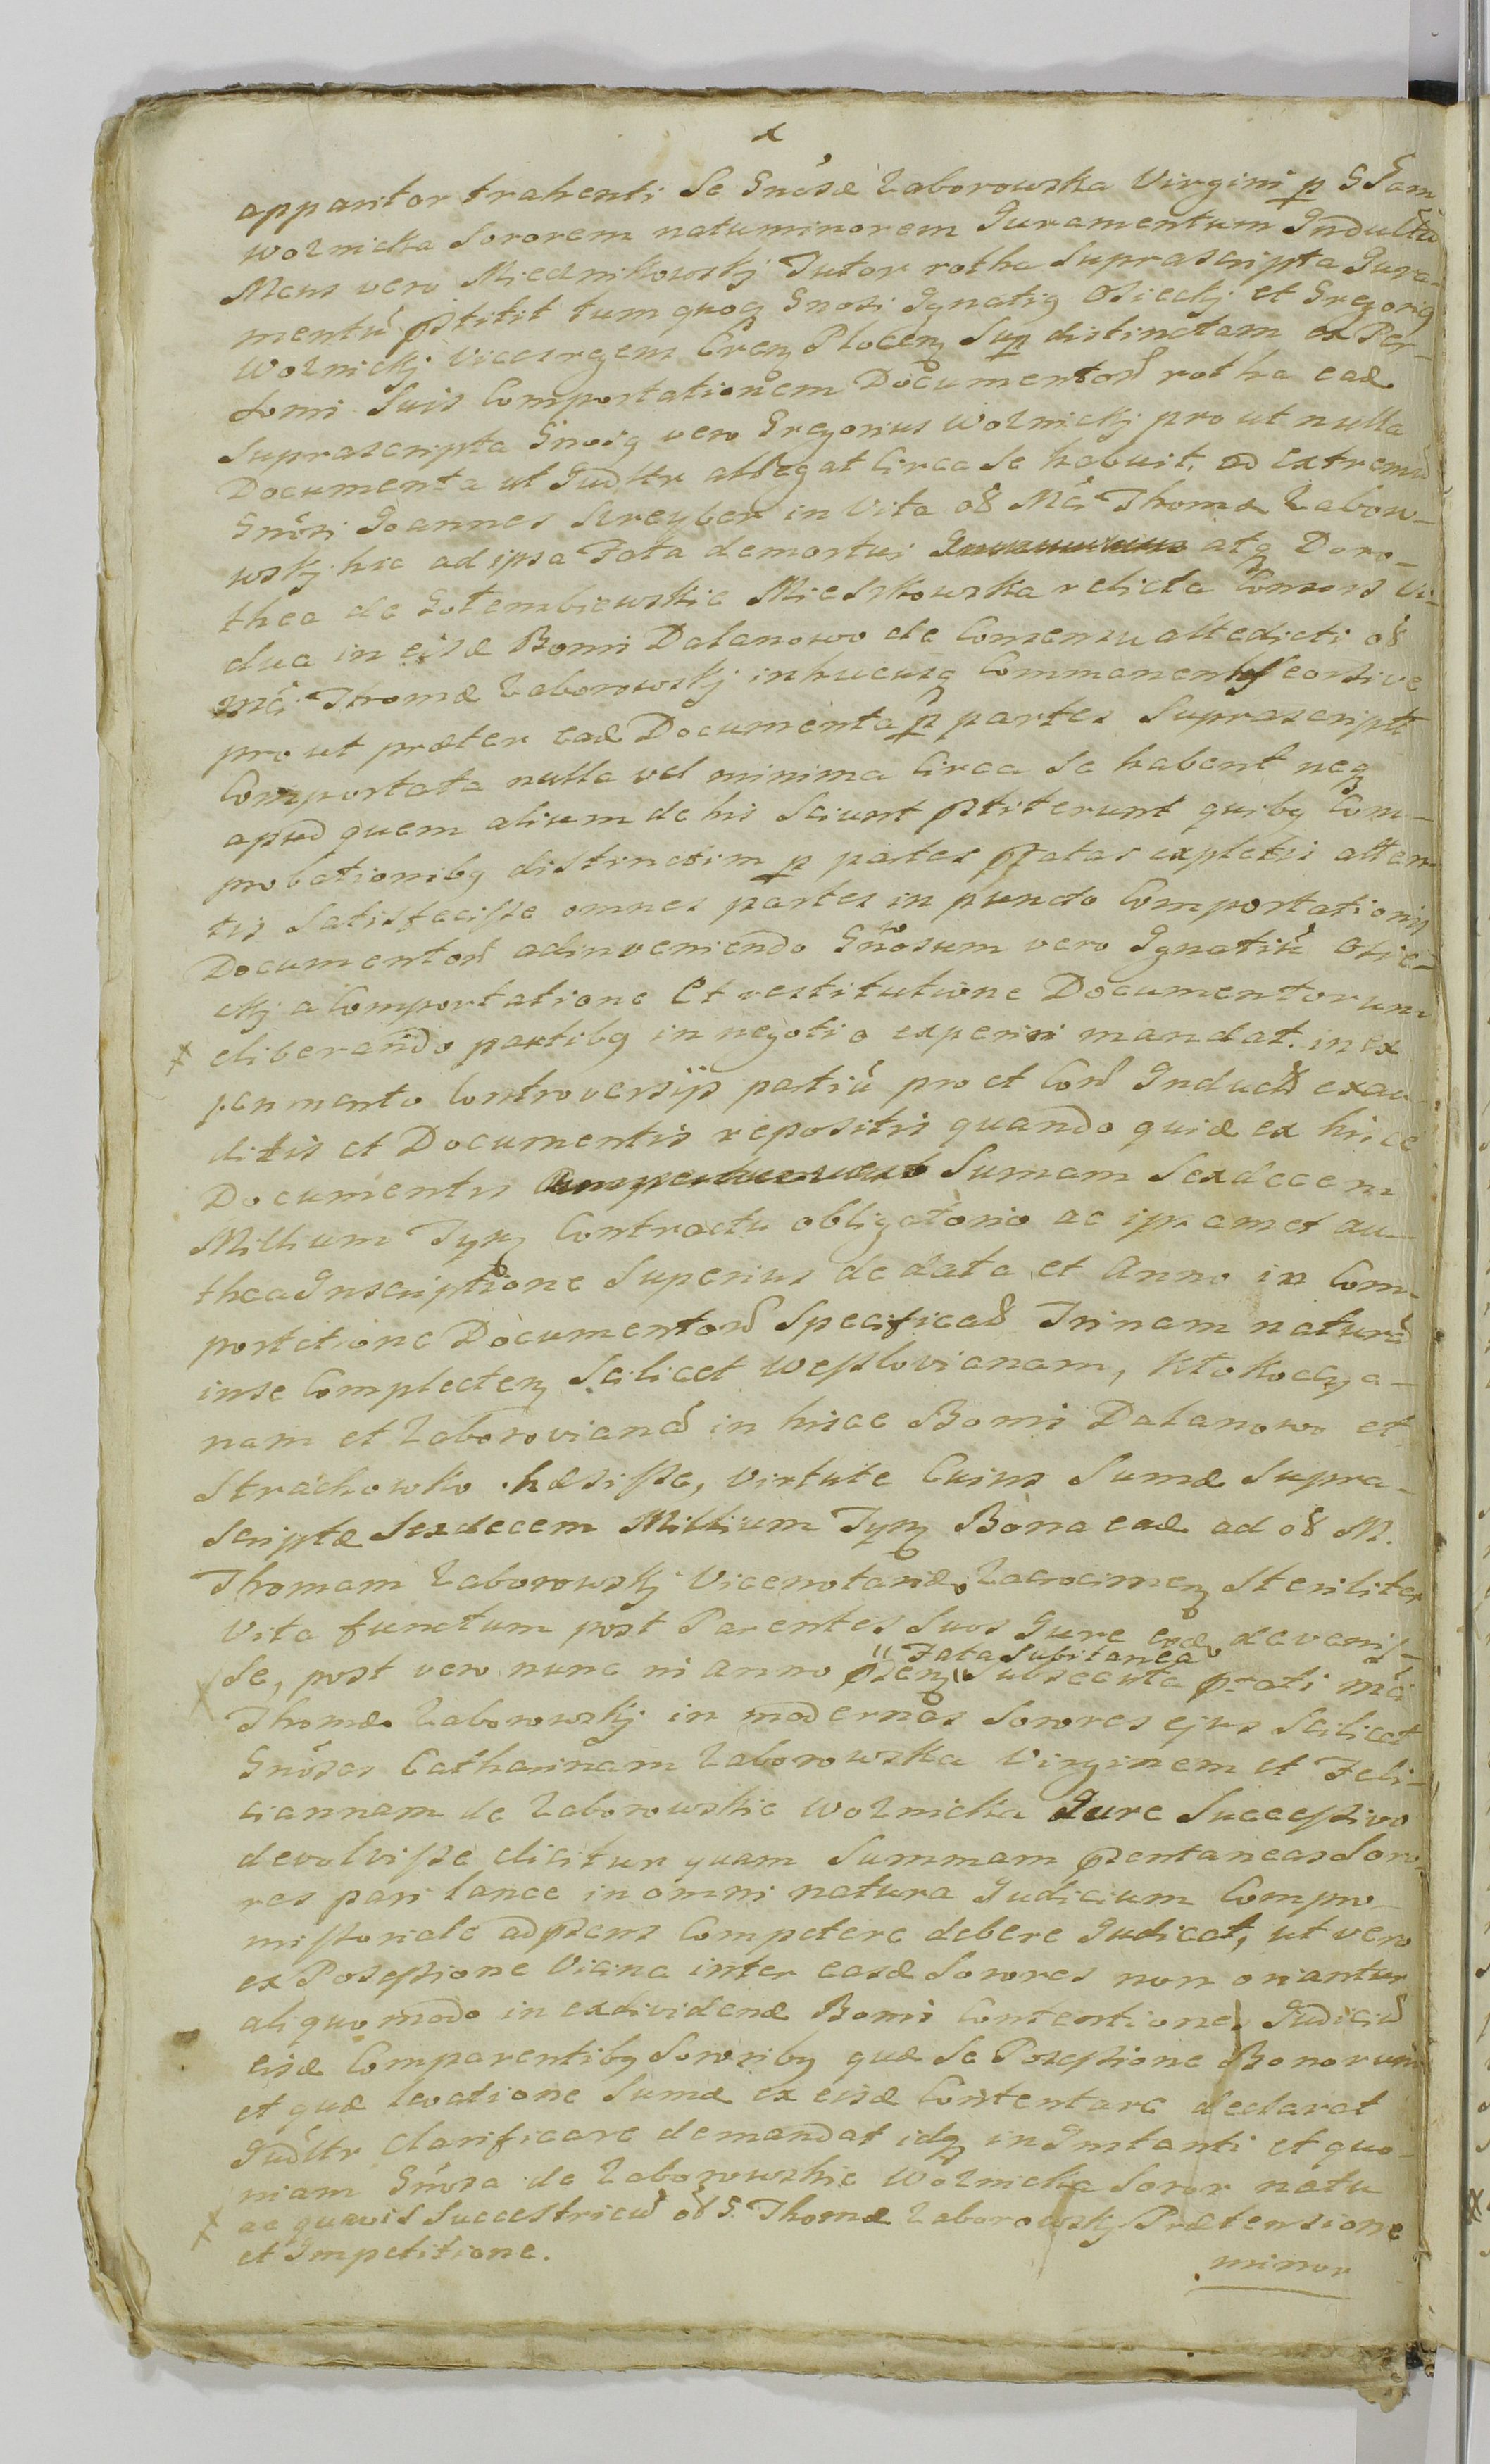 x
appantor trahenti Se Gnosæ Zaborowska Virgini p G Fam
Woznicka Sororem natuminorem Juramentum Indultu
Mens vero Miecznikowskj Tutor rotha Suprascripta Jura-
mentũ pstitit tum quoq Gnosi Ignatig Osieckj et Gregorig
Woznickj Vicesrgem Creg Plocenz Sup distinctam ex Per-
sonis Suis Comportationem Documentor rotha ead
Suprascripta Gnosg vero Gregorius Woznickj pro ut nulla
Documenta ut Judttr allegat Circa Se habuit. ad extremũ
Gnosi Joannes Kreyber in Vita oð Mci Thomæ Zaboro-
wskj hic ad ipsa Fata demortui atq Doro-
thea de Gołembiewskie Mieszkowska relicta Consors Vi-
dua in eisð Bonis Dalanowo de Consensu attedicti oð
Mci Thomæ Zaborowskj inhucusq Commanentes seorsive
pro ut præter ead Documenta p partes Suprascripte
Comportata nulla vel minima Circa Se habent neq
apud quem alium de his Sciunt pstiterunt quibg Com-
probationibg distinctim p partes pstatas expletis atten-
tis Satisfecisse omnes partes in puncto Comportationis
Documentor adinveniendo Gnosum vero Ignatiũ Osie-
ckj a Comportatione Et restitutione Documentorum
x eliberando partibg in negotio experiri mandat. in ex
perimento Controversijs partiũ pro et Con Inductis exau-
ditis et Documentis repositis quando quidæ ex hisce
Documentis Sumam Sexdecem
Millium Tynf Contractu obligatorio ac ipsamet au-
theainscriptione Superius de data et Anno in Com-
portatione Documentor Specificað Trinam naturã
inse Complectenz Scilicet Wessloviænam, Kłokocya-
nam et Zaborovianã in hisce Bonis Dalanowo et
Strachowko hæsisse, virtute Cuius Sumæ Supra-
Scriptæ Sexdecem Millium Tynf Bona ead ad oð M.
Thomam Zaborowskj Vicenotariæ Zacrocimenz Steriliter
Vita functum post Parentes Suos Jure eisð devenis-
x Se, post vero nunc in anno psenz "Fata Subitanea" Subsecuta pstati Mci
Thomæ Zaborowskj in modernas Sorores ejus Scilicet
Gnosas Catharinam Zaborowska Virginem et Feli-
ciannam de Zaborowskie Woznicka Jure Successivo
devolvisse dicitur quam Summam psentaneas Soro-
res pari lance in omni natura Judicium Compro-
missoriale adpsens Competere debere Judicat, ut vero
ex Possessione Vicina inter easð Sorores non oriantur
aliquo modo in exdividend Bonis Contentiones Judiciũ
eisð Comparentibg Sororibg quæ Se Possessione Bonorum
et quæ levatione Sumæ ex eisð Contentare declarat
Judttr Clarificare demandat idq in Instanti et quo-
niam Gnosa de Zaborowskie Woznicka Soror natu
x ac quavis Succestricũ oð G. Thomæ Zaborowskj Prætensione
et Impetitione.
minor